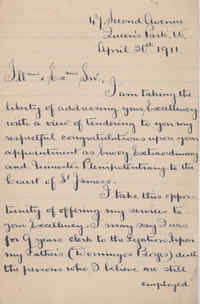 47, Second Avenue
Queen's Park, W.
April 20th 1911.
Illmo & Exmo Snr.
I am taking the
liberty of addressing your Excellency
with a view of tendering to you my
respectful congratulations upon your
appointment as Envoy Extraordinary
and Minister Plenipotentiary to the
Court of St James.
I take this oppor-
tunity of offering my services to
your Excellency. I may say I was
for 9 years clerk to the Legation & upon
my Father's (Domingos) death
the persons who I believe are still
employed